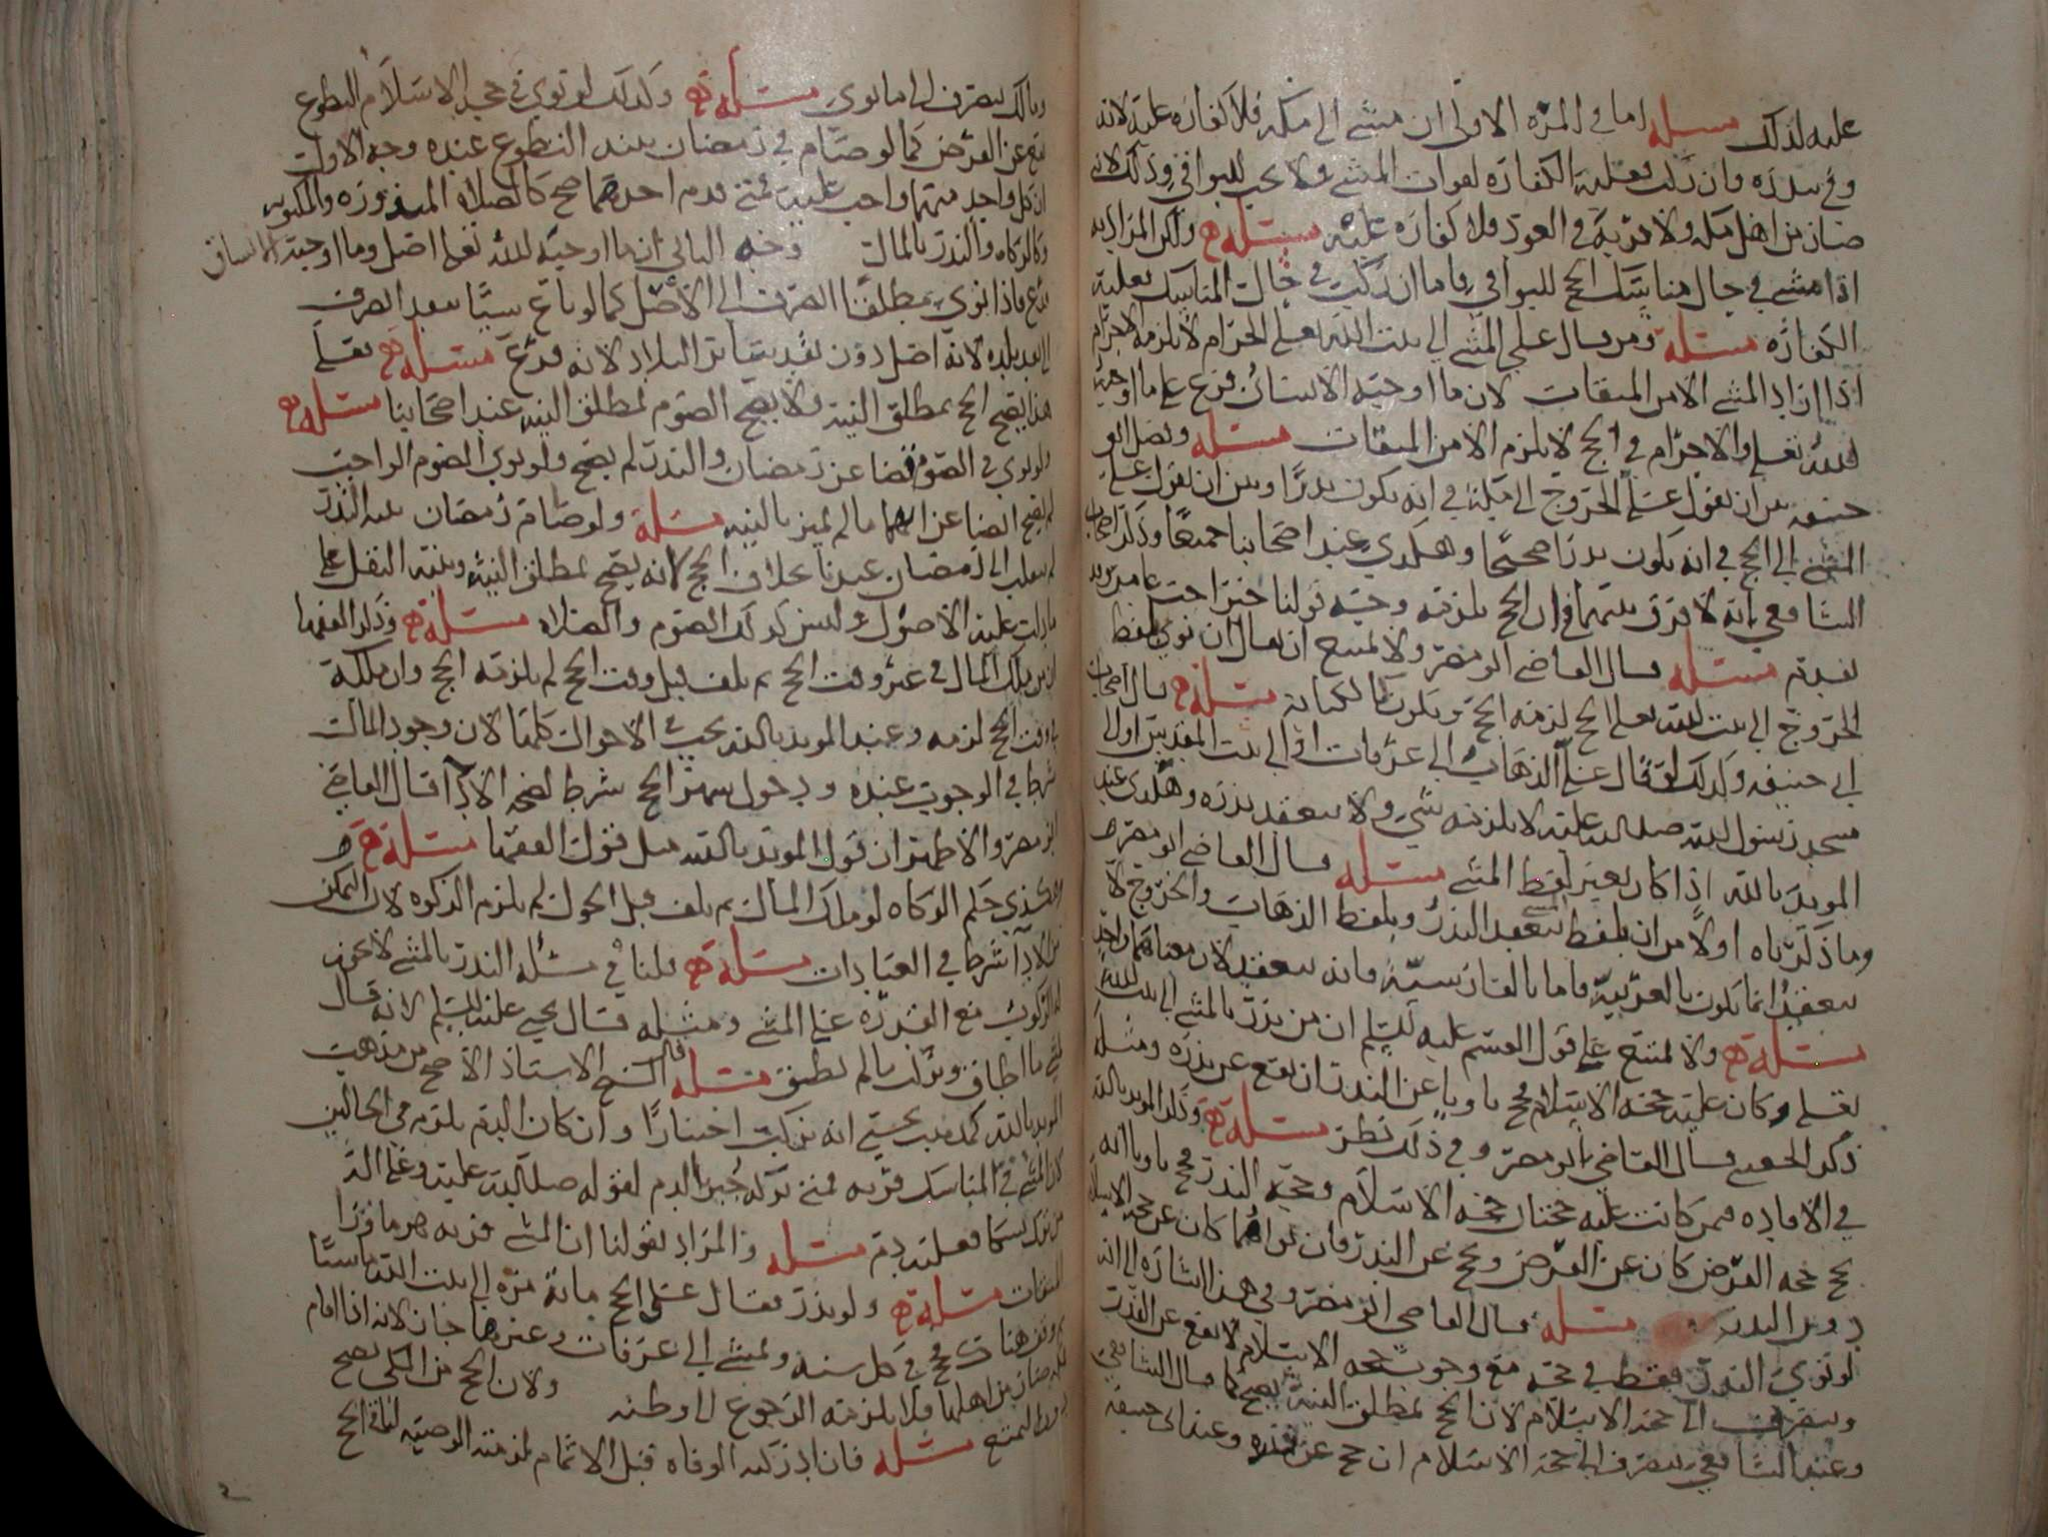 عليه لذلك مسئلة اما في المرة الاولى ان مشى الى مكه فلا كفاره عليه لانه
وفى بنذره وان ركب فعليه الكفاره لفوات المشي ولا يجب للبواقي وذلك لانه
صار من اهل مكه ولا قربة في العود فلا كفاره عليه مسئلة ولكن المراد به
اذا مشى في حال مناسك الحج للبواقي فاما ان ركب في حال المناسك فعليه
الكفاره مسئلة ومن قال علي المشي الى بيت الله تعالى الحرام لا يلزمه الاحرام
اذا اراد المشي الا من الميقات لان ما اوجبه الانسان فرع على ما اوجبه
الله تعالى والاحرام في الحج لا يلزم الا من الميقات مسئلة وفصل ابو
حنيفه بين ان يقول علي الخروج الى مكة في انه يكون نذرا وبين ان يقول علي
المشي الى الحج في انه يكون نذرا صحيحا وهكذي عند اصحابنا جميعا وذكر اصحاب
الشافعي انه لا فرق بينهما في ان الحج يلزمه وجنبه قولنا خبر احب
مسئلة قال القاضي ابو مضر ولا يمتنع ان يقال ان نوى بلفظ
الخروج الى بيت الله تعالى الحج لزمه الحج ويكون كالكنايه مسئلة قال اصحاب
ابي حنيفه وكذلك لو قال علي الذهاب الى عرفات او الى بيت المقدس او الى
مسجد رسول الله صلى الله عليه لا يلزمه شي ولا ينعقد نذره وهكذى عند
المويد بالله اذا كان بغير لفظ المشي مسئلة قال القاضي ابو مضر
وما ذكرناه اولا من ان بلفظ المشي ينعقد النذر وبلفظ الذهاب والخروج لا
ينعقد انما يكون بالعربية فاما بالفارسية فانه ينعقد لان معناهما واحد
مسئلة ولا يمتنع على قول القسم عليه السلم ان من نذر بالمشي الى بيت الله
تعالى وكان عليه حجة الاسلام فحج ناويا عن النذر ان يقع عن نذره ومثله
ذكر الحنفيه قال القاضي ابو مضر وفي ذلك نظر مسئلة وذكر المويد بالله
في الافاده فمن كانت عليه حجتان حجه الاسلام وحجه النذر فحج ناويا انه
حج حجه الفرض كان عن الفرض وحج عن النذر فان نواهما كان عن حجه الاسلام
دون النذر مسئلة قال القاضي ابو مضر وفي هذا اشاره الى انه
لو نوى النذر فقط في حجه مع وجوب حجه الاسلام لا يقع عن النذر
وينصرف الى حجه الاسلام لان الحج بمطلق النية يصح كما قال الشافعي
وعند الشافعي ينصرف الى حجة الاسلام ان حج عن غيره وعند ابي حنيفه
ومالك ينصرف الى ما نوى مسئلة وكذلك لو نوى في حجه الاسلام التطوع
يقع عن الفرض كما لو صام في رمضان بنية التطوع عنده وجه الاول
ان كل واحد منهما واجب عليه فمتى قدم احدهما صح كالصلاه المنذوره والمكتوبه
وكالزكاه والنذر بالمال وجه الثاني ان ما اوجبه الله تعالى اصل وما اوجبه الانسان
فرع فاذا نوى مطلقا انصرف الى الاصل كما لو باع شيئا بنقد انصرف
الى نقد بلده لانه اصل دون نقد سائر البلاد لانه فرع مسئلة فعلى
هذا يصح الحج بمطلق النيه ولا يصح الصوم بمطلق النيه عند اصحابنا مسئلة
ولو نوى في الصوم قضا عن رمضان والنذر لم يصح ولو نوى الصوم الواجب
لم يصح ايضا عن ايهما ما لم يميز بالنيه مسئلة ولو صام رمضان بنية النذر
لم ينقلب الى رمضان عندنا بخلاف الحج لانه يصح بمطلق النيه وبنية النفل على
ما دلت عليه الاصول وليس كذلك الصوم والصلاه مسئلة وذكر الفقها
ان من ملك المال في غير وقت الحج ثم تلف قبل وقت الحج لم يلزمه الحج وان ملكه
في وقت الحج لزمه وعند المويد بالله يجب في الاحوال كلها لان وجود المال
شرط في الوجوب عنده ودخول شهر الحج شرط لصحه الاداء قال القاضي
ابو مضر والاظهر ان قول المويد بالله مثل قول الفقها مسئلة
وهكذي حكم الزكاه لو ملك المال ثم تلف قبل الحول لم يلزم الزكوه لان التمكن
من الاداء شرط في العبادات مسئلة قلنا في مسئله النذر بالمشي لا يجوز
له الركوب مع القدره على المشي ومثله قال يحيى عليه السلم لانه قال
يمشي ما اطاق ويركب ما لم يطق مسئلة قال الشيخ الاستاذ الاصح من مذهب
المويد بالله كمذهب يحيى انه يركب اختيارا وان كان الدم يلزمه في الحالين
لان المشي في المناسك قربه فمتى تركه جبر بالدم لقوله صلى الله عليه وعلى اله
من ترك نسكا فعليه دم مسئلة والمراد بقولنا ان المشي قربه هو ما ورا
الميقات مسئلة ولو نذر فقال علي الحج مائة مره الى بيت الله ماشيا
ثم وقف هناك فحج في كل سنه ويمشي الى عرفات وغيرها جاز لانه اذا اقام
بمكه صار من اهلها فلا يلزمه الرجوع الى وطنه ولان الحج من المكي يصح
ولا يمتنع مسئلة فان ادركته الوفاه قبل الاتمام لزمته الوصيه لباقي الحج